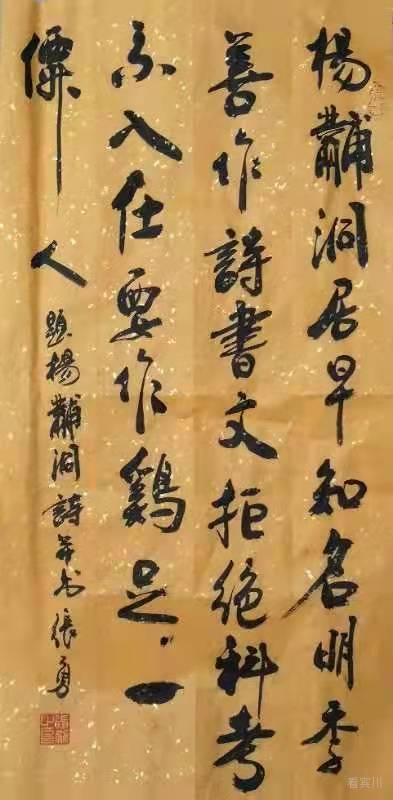 楊黼洞居早知名明季
善作詩書文拒絕科考
不入仕要作鷄足一
僊人
題楊黼洞詩并书張勇
看宾川